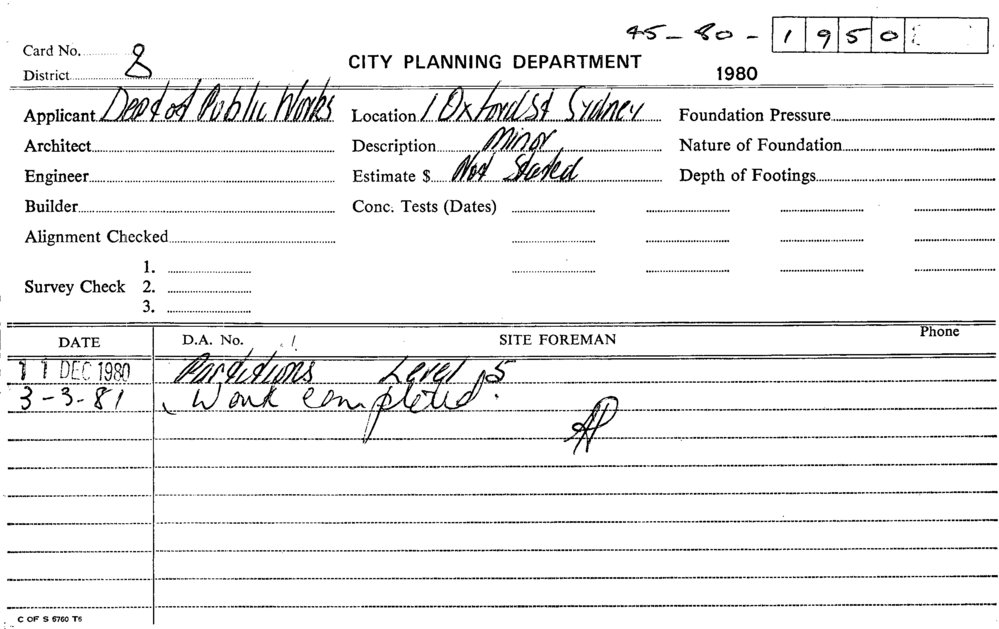 45-80- 1950
Card No. 8
CITY PLANNING DEPARTMENT
District
1980
Applicant Dept of Public Works Location 1 Oxford St Sydney Foundation Pressure
Architect Description Minor Nature of Foundation
Engineer Estimate $ Not Stated Depth of Footings
Builder Conc. Tests (Dates)
Alignment Checked
1.
Survey Check 2.
3.
DATE D.A. No. SITE FOREMAN Phone
11 DEC 1980 Partitions Level 5
3-3-81 Work completed.
C OF S 6760 T6